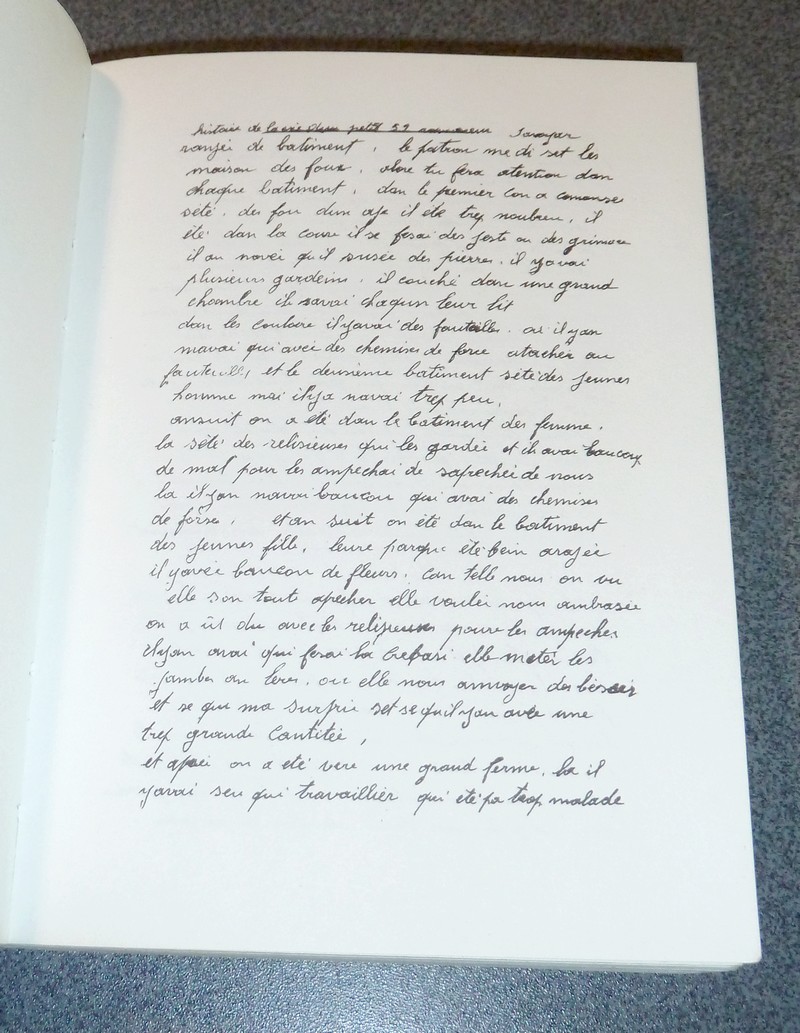 histoire de la vie dun petit 59 ramoneur Savoyar
ranjée de batiment, le patron me di set les
maison des foux, alore tu fera atention dan
chaque batiment, dan le premier lon a comanse
sété, des fou dun aje il été trep nonbreu, il
été dan la coure il se fesai des jeste ou des grimace
il an navei qu'il susée des pierres, il yavai
plusieurs gardeins, il couché dan une grand
chambre ils avai chaqun leur lit
dan les couloire il yavai des fauteills, ou il yan
navai qui avei des chemises de force atachée au
fauteuills, et le deusième batiment sété des jeunes
homme mai il yja navai trep peu,
ansuit on a été dan le batiment des femme,
la sété des relisieuses qui les gardée et ils avai baucoup
de mal pour les ampechai de saprechée de nous
la il yan navai baucou qui avai des chemises
de forse, et an suit on été dan le batiment
des jeunes fille, leure parque été bein arajée
il yavée baucou de fleurs, can telle nous on vu
elle son tout aprecher elle voulée nous ambrasée
on a üt du avec les relijeuses poure les ampecher
il yan avai qui fesai la elle metér les
jambes an lere, ou elle nous anvoyer des béseir
et se qui ma surprie set se quil yan avée une
trep grande cantitée,
et apréi on a été vere une grand ferme, la il
yavai seu qui travaillier qui été pa trop malade